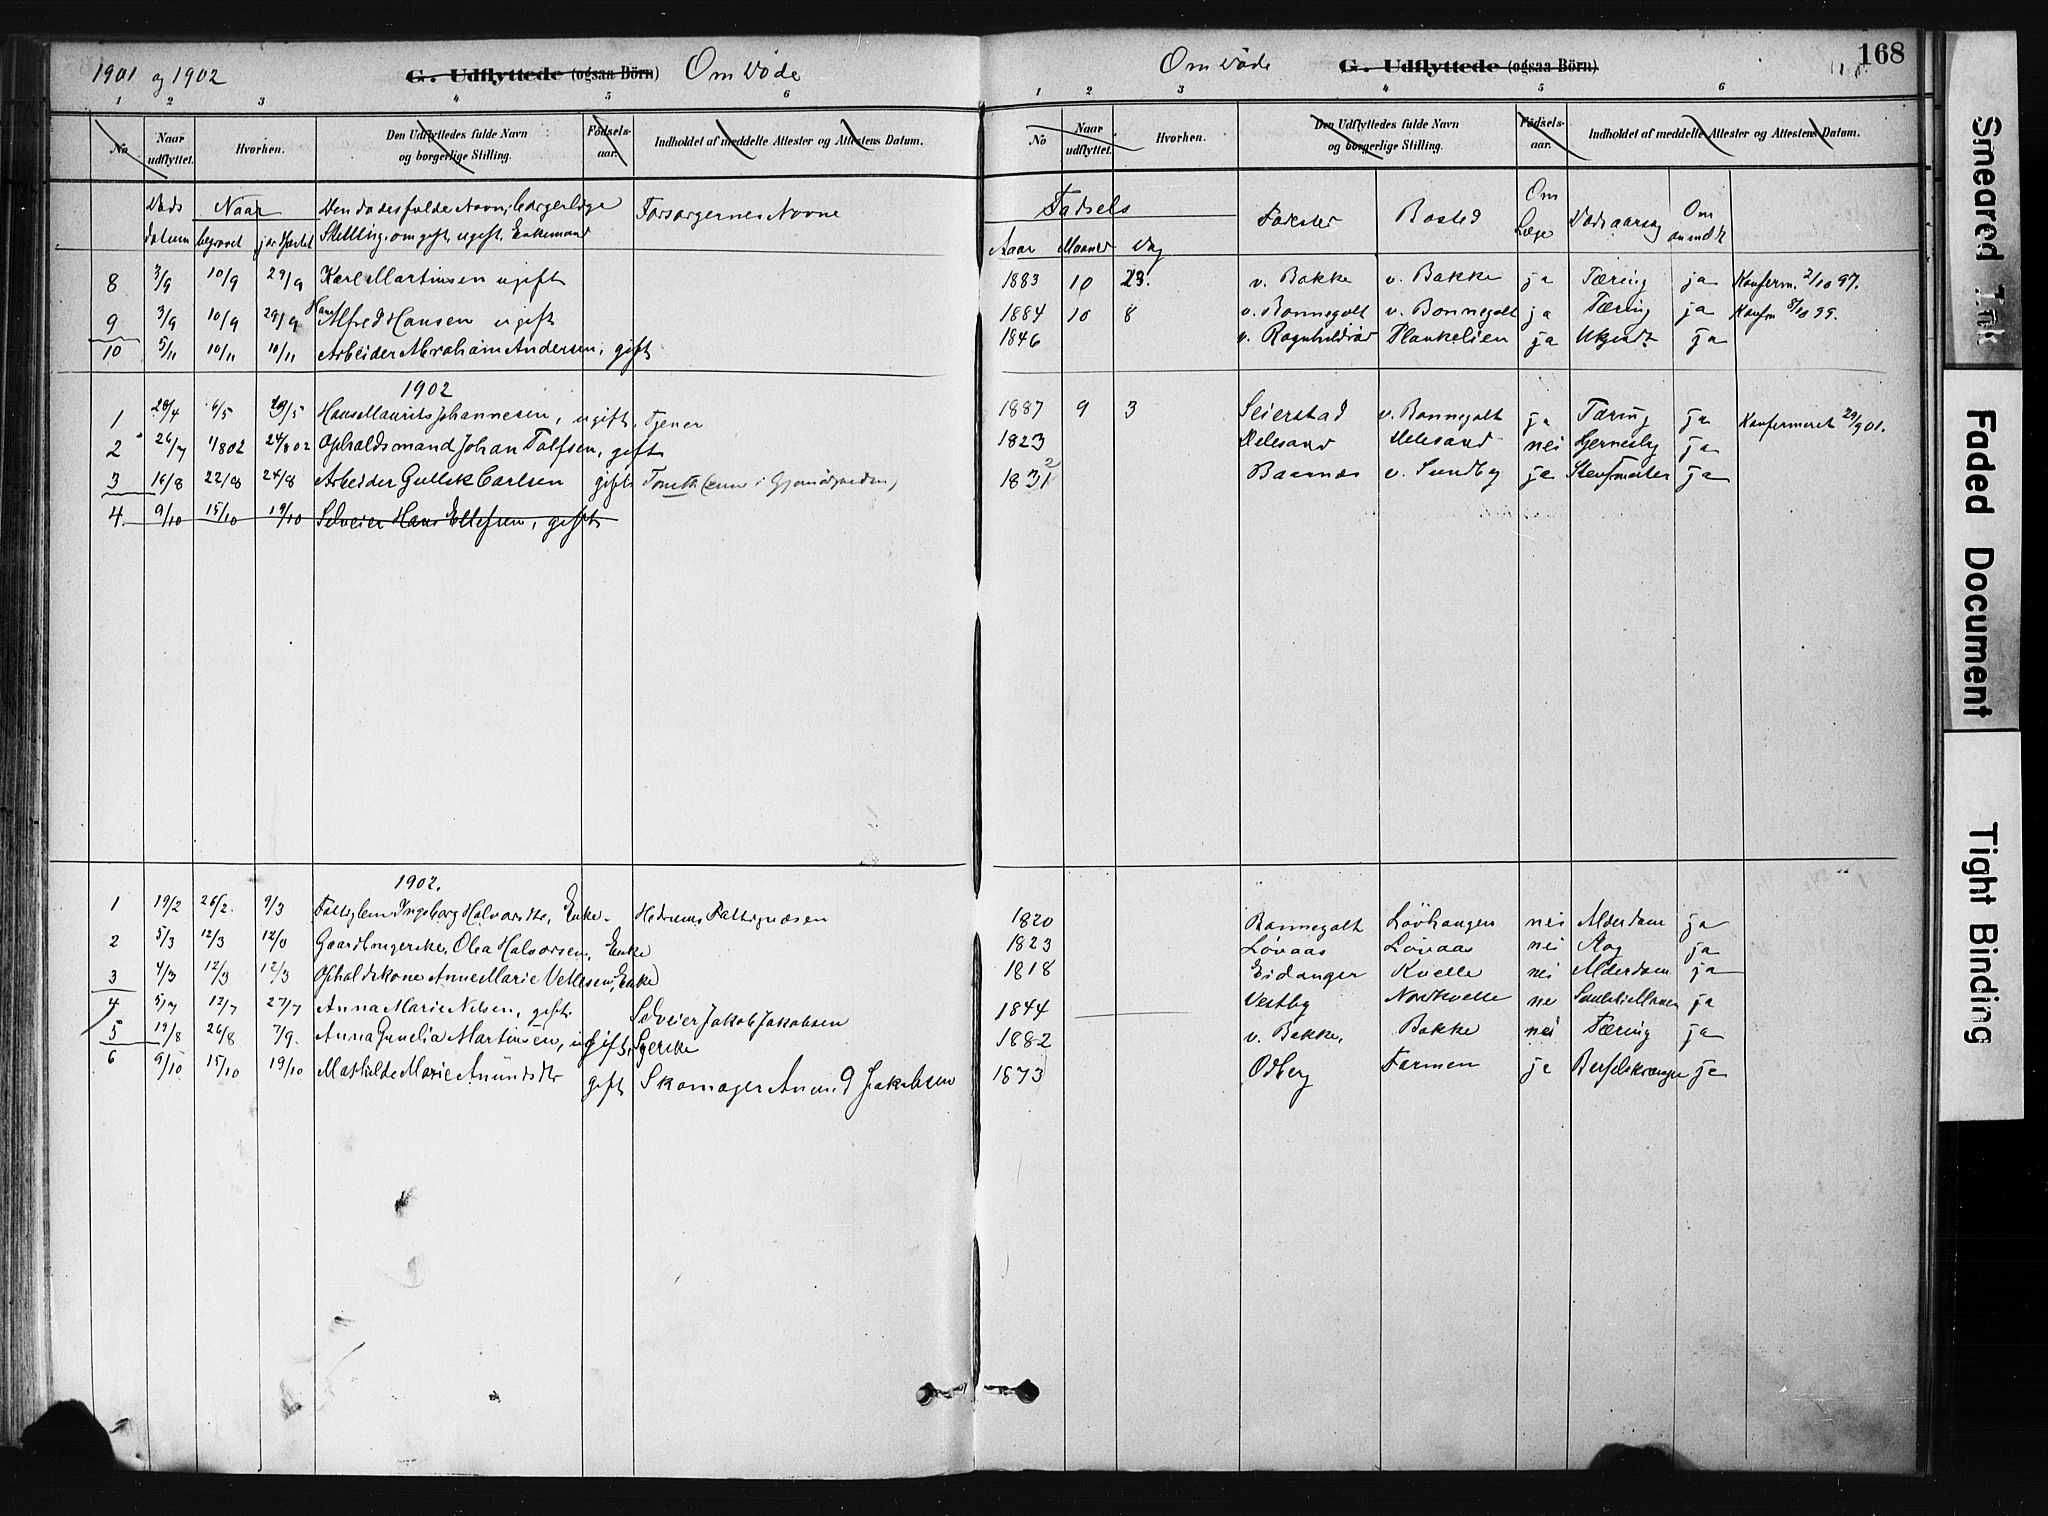 1901 og 1902 G. Udflyttede (ogsaa Börn) Om Døde
1 2 3 4 5 6
No Naar udflyttet. Hvorhen. Den Udflyttedes fulde Navn og borgerlige Stilling. Fødsels-aar. Indholdet af meddelte Attester og Attestens Datum.
Døds datum Naar begravet jordfæstet Den dødes fulde Navn, borgerlige Stilling, om gift, ugift, Enkemand Forsørgernes Navne
8 3/9 10/9 29/9 Karl Martinsen ugift
9 3/9 10/9 29/9 Hans Alfred Hansen ugift
10 5/11 10/11 10/11 Arbeider Abraham Andersen, gift
1902
1 28/4 6/5 Hans Maurits Johannesen, ugift, Tjener
2 26/7 1/802 24/802 Opholdsmand Johan Tolfsen, gift
3 16/8 22/8 24/8 Arbeider Gullik Carlsen gift
4. 9/10 15/10 19/10 Selveier Hans Ellefsen, gift
1902.
1 19/2 26/2. 9/3 Fattiglem Ingeborg Halvorsdtr, Enke. Hedrums Fattigvæsen
2 5/3 12/3 Gaardbrugerske, Olea Halvorsen, Enke
3 4/3 12/3 12/3 Opholdskone Anne Marie Vetlesen, Enke
4 5/7 12/7 27/7 Anna Marie Nilsen, gift. Selveier Jakob Jakobsen
5 19/8 26/8 7/9. Anna Martinsen, ugift,
6 9/10 15/10 19/10 Mathilde Marie Amundsdtr gift Skomager Amund Jakobsen
Om Døde G. Udflyttede (ogsaa Börn) 168
1 2 3 4 5 6
No Naar udflyttet. Hvorhen. Den Udflyttedes fulde Navn og borgerlige Stilling. Fødsels-aar. Indholdet af meddelte Attester og Attestens Datum.
Fødsels Aar Maaned Dag Fødested Bosted Om Læge Dødsaarsag Om anmeldt
1883 10 23. v. Bakke v. Bakke ja Tæring ja Konferm. 2/10 97.
1884 10 8 v. Bonnegolt v. Bonnegolt ja Tæring ja Konfm 8/10 99.
1846 v. Ragnhildrød Haukelien ja Ukjendt ja
1887 9 3 Seierstad v. Bonnegolt ja Tæring ja Konfermeret 29/9 01.
1823 Melesand Melesand nei ja
1831 2 v. Sundby ja ja
1820 Bonnegolt Løvhaugen nei Alderdom ja
1823 Løvaas Løvaas nei ja
1818 Eidanger Kvelle nei Alderdom ja
1844 Vestby Nordkvelle ne ja
1882 v. Bakke, Bakke nei Tæring ja
1873 Odberg Farmen ja ja
Smeared Ink
Faded Document
Tight Binding